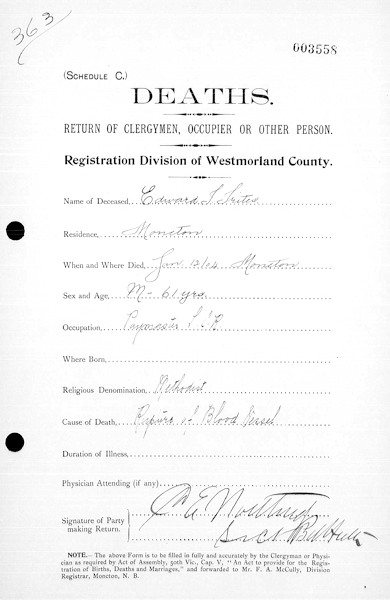 363
003558
(SCHEDULE C.)
DEATHS.
RETURN OF CLERGYMEN, OCCUPIER OR OTHER PERSON.
Registration Division of Westmorland County.
Name of Deceased, Edward
Residence, Moncton
When and Where Died, Jan 13/04 Moncton
Sex and Age, M - 61 yrs
Occupation,
Where Born,
Religious Denomination, Methodist
Cause of Death, Rupture of Blood Vessel
Duration of Illness,
Physician Attending (if any).
Signature of Party
making Return.
NOTE.—The above Form is to be filled in fully and accurately by the Clergyman or Physi-
cian as required by Act of Assembly, 50th Vic., Cap. V, "An Act to provide for the Regis-
tration of Births, Deaths and Marriages," and forwarded to Mr. F. A. McCully, Division
Registrar, Moncton, N. B.